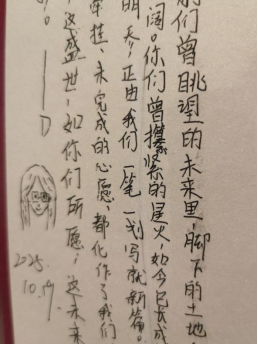 们曾眺望的未来里，脚下的土地
阔。你们曾攥紧的星火，如今已长成
明天，正由我们一笔一划写就新篇。
牵挂、未完成的心愿，都化作了我们
这盛世，如你们所愿，这未来
。——D
2025.